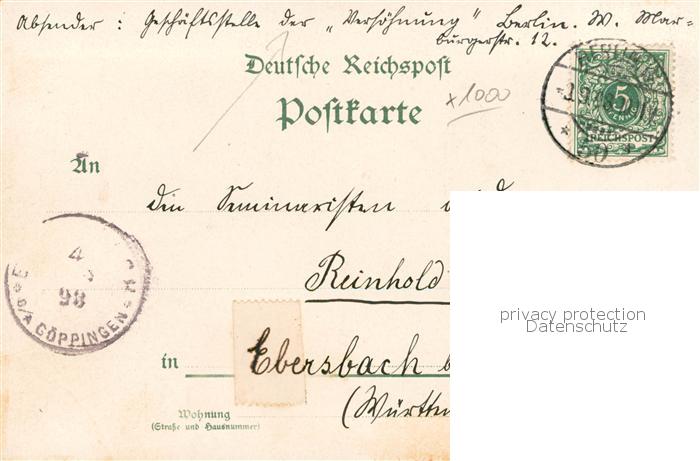 Absender: Geschäftsstelle der „Versöhnung" Berlin. W. Mar-
burgerstr. 12.
Deutsche Reichspost
Postkarte
x 1000
BERLIN
5
PFENNIG
REICHSPOST
50
An
den Seminaristen
Reinhold
privacy protection
Datenschutz
4
98
GÖPPINGEN
in Ebersbach
(Württe
Wohnung
(Straße und Hausnummer)